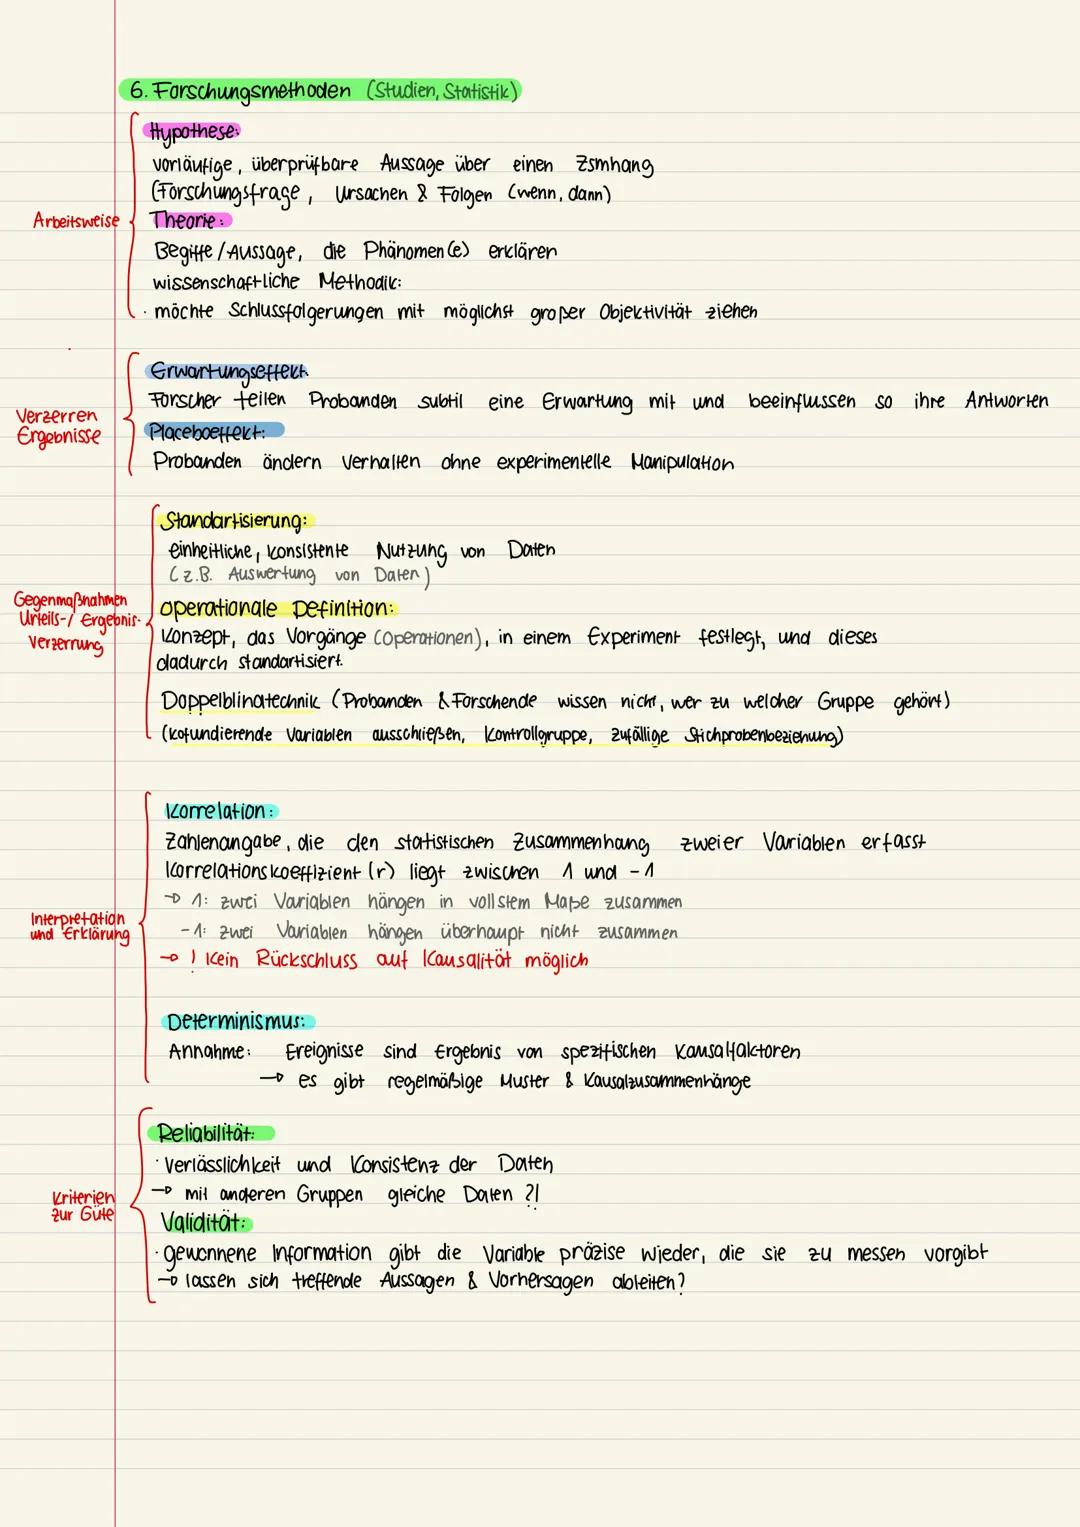 6. Forschungsmethoden (Studien, Statistik)
Hypothese:
vorläufige, überprüfbare Aussage über einen Zsmhang
(Forschungsfrage, Ursachen & Folgen (wenn, dann)
Arbeitsweise
Theorie:
Begiffe/Aussage, die Phänomen(e) erklären
wissenschaftliche Methodik:
· möchte Schlussfolgerungen mit möglichst großer Objektivität ziehen
Erwartungseffekt:
Forscher teilen Probanden subtil eine Erwartung mit und beeinflussen so ihre Antworten
Verzerren
Ergebnisse
Placeboeffekt:
Probanden ändern Verhalten ohne experimentelle Manipulation
Standartisierung:
einheitliche, konsistente Nutzung von Daten
(z.B. Auswertung von Daten)
Gegenmaßnahmen
Urteils-/ Ergebnis-
Verzerrung
operationale Definition:
Konzept, das Vorgänge (Operationen), in einem Experiment festlegt, und dieses
dadurch standartisiert.
Doppelblindtechnik (Probanden & Forschende wissen nicht, wer zu welcher Gruppe gehört)
(kofundierende Variablen ausschließen, Kontrollgruppe, zufällige Stichprobenbeziehung)
Korrelation:
Zahlenangabe, die den statistischen Zusammenhang zweier Variablen erfasst
Korrelationskoeffizient (r) liegt zwischen 1 und -1
→ 1: zwei Variablen hängen in vollstem Maße zusammen
Interpretation
und Erklärung
-1: zwei Variablen hängen überhaupt nicht zusammen
→ ! Kein Rückschluss auf Kausalität möglich
Determinismus:
Annahme: Ereignisse sind Ergebnis von spezifischen Kausalfaktoren
→ es gibt regelmäßige Muster & Kausalzusammenhänge
Reliabilität:
· Verlässlichkeit und Konsistenz der Daten
→ mit anderen Gruppen gleiche Daten ?!
Kriterien
zur Güte
Validität:
· gewonnene Information gibt die Variable präzise wieder, die sie zu messen vorgibt
→ lassen sich treffende Aussagen & Vorhersagen ableiten?